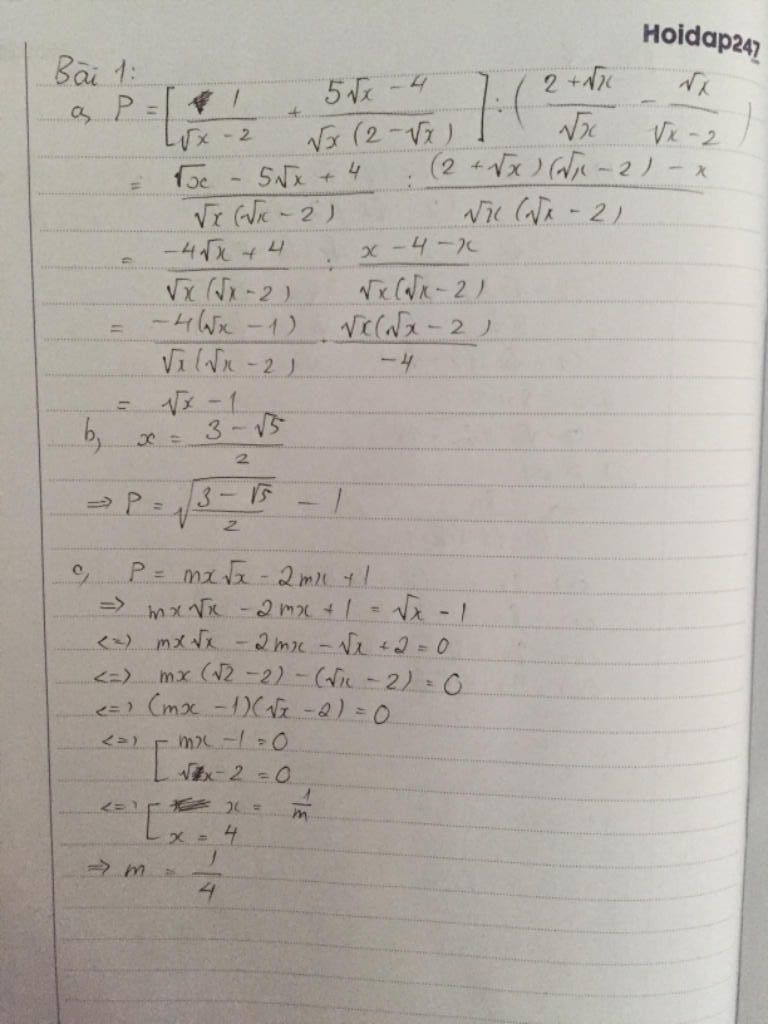 Hoidap247
Bài 1:
a, P = [ 1/(√x - 2) + (5√x - 4)/(√x(2 - √x)) ] : ( (2 + √x)/√x - √x/(√x - 2) )
= (√x - 5√x + 4)/(√x(√x - 2)) : ((2 + √x)(√x - 2) - x)/(√x(√x - 2))
= (-4√x + 4)/(√x(√x - 2)) : (x - 4 - x)/(√x(√x - 2))
= (-4(√x - 1))/(√x(√x - 2)) . (√x(√x - 2))/(-4)
= √x - 1
b, x = (3 - √5)/2
=> P = √((3 - √5)/2) - 1
c, P = mx√x - 2mx + 1
=> mx√x - 2mx + 1 = √x - 1
<=> mx√x - 2mx - √x + 2 = 0
<=> mx(√2 - 2) - (√x - 2) = 0
<=> (mx - 1)(√x - 2) = 0
<=> [ mx - 1 = 0
√x - 2 = 0
<=> [ x = 1/m
x = 4
=> m = 1/4